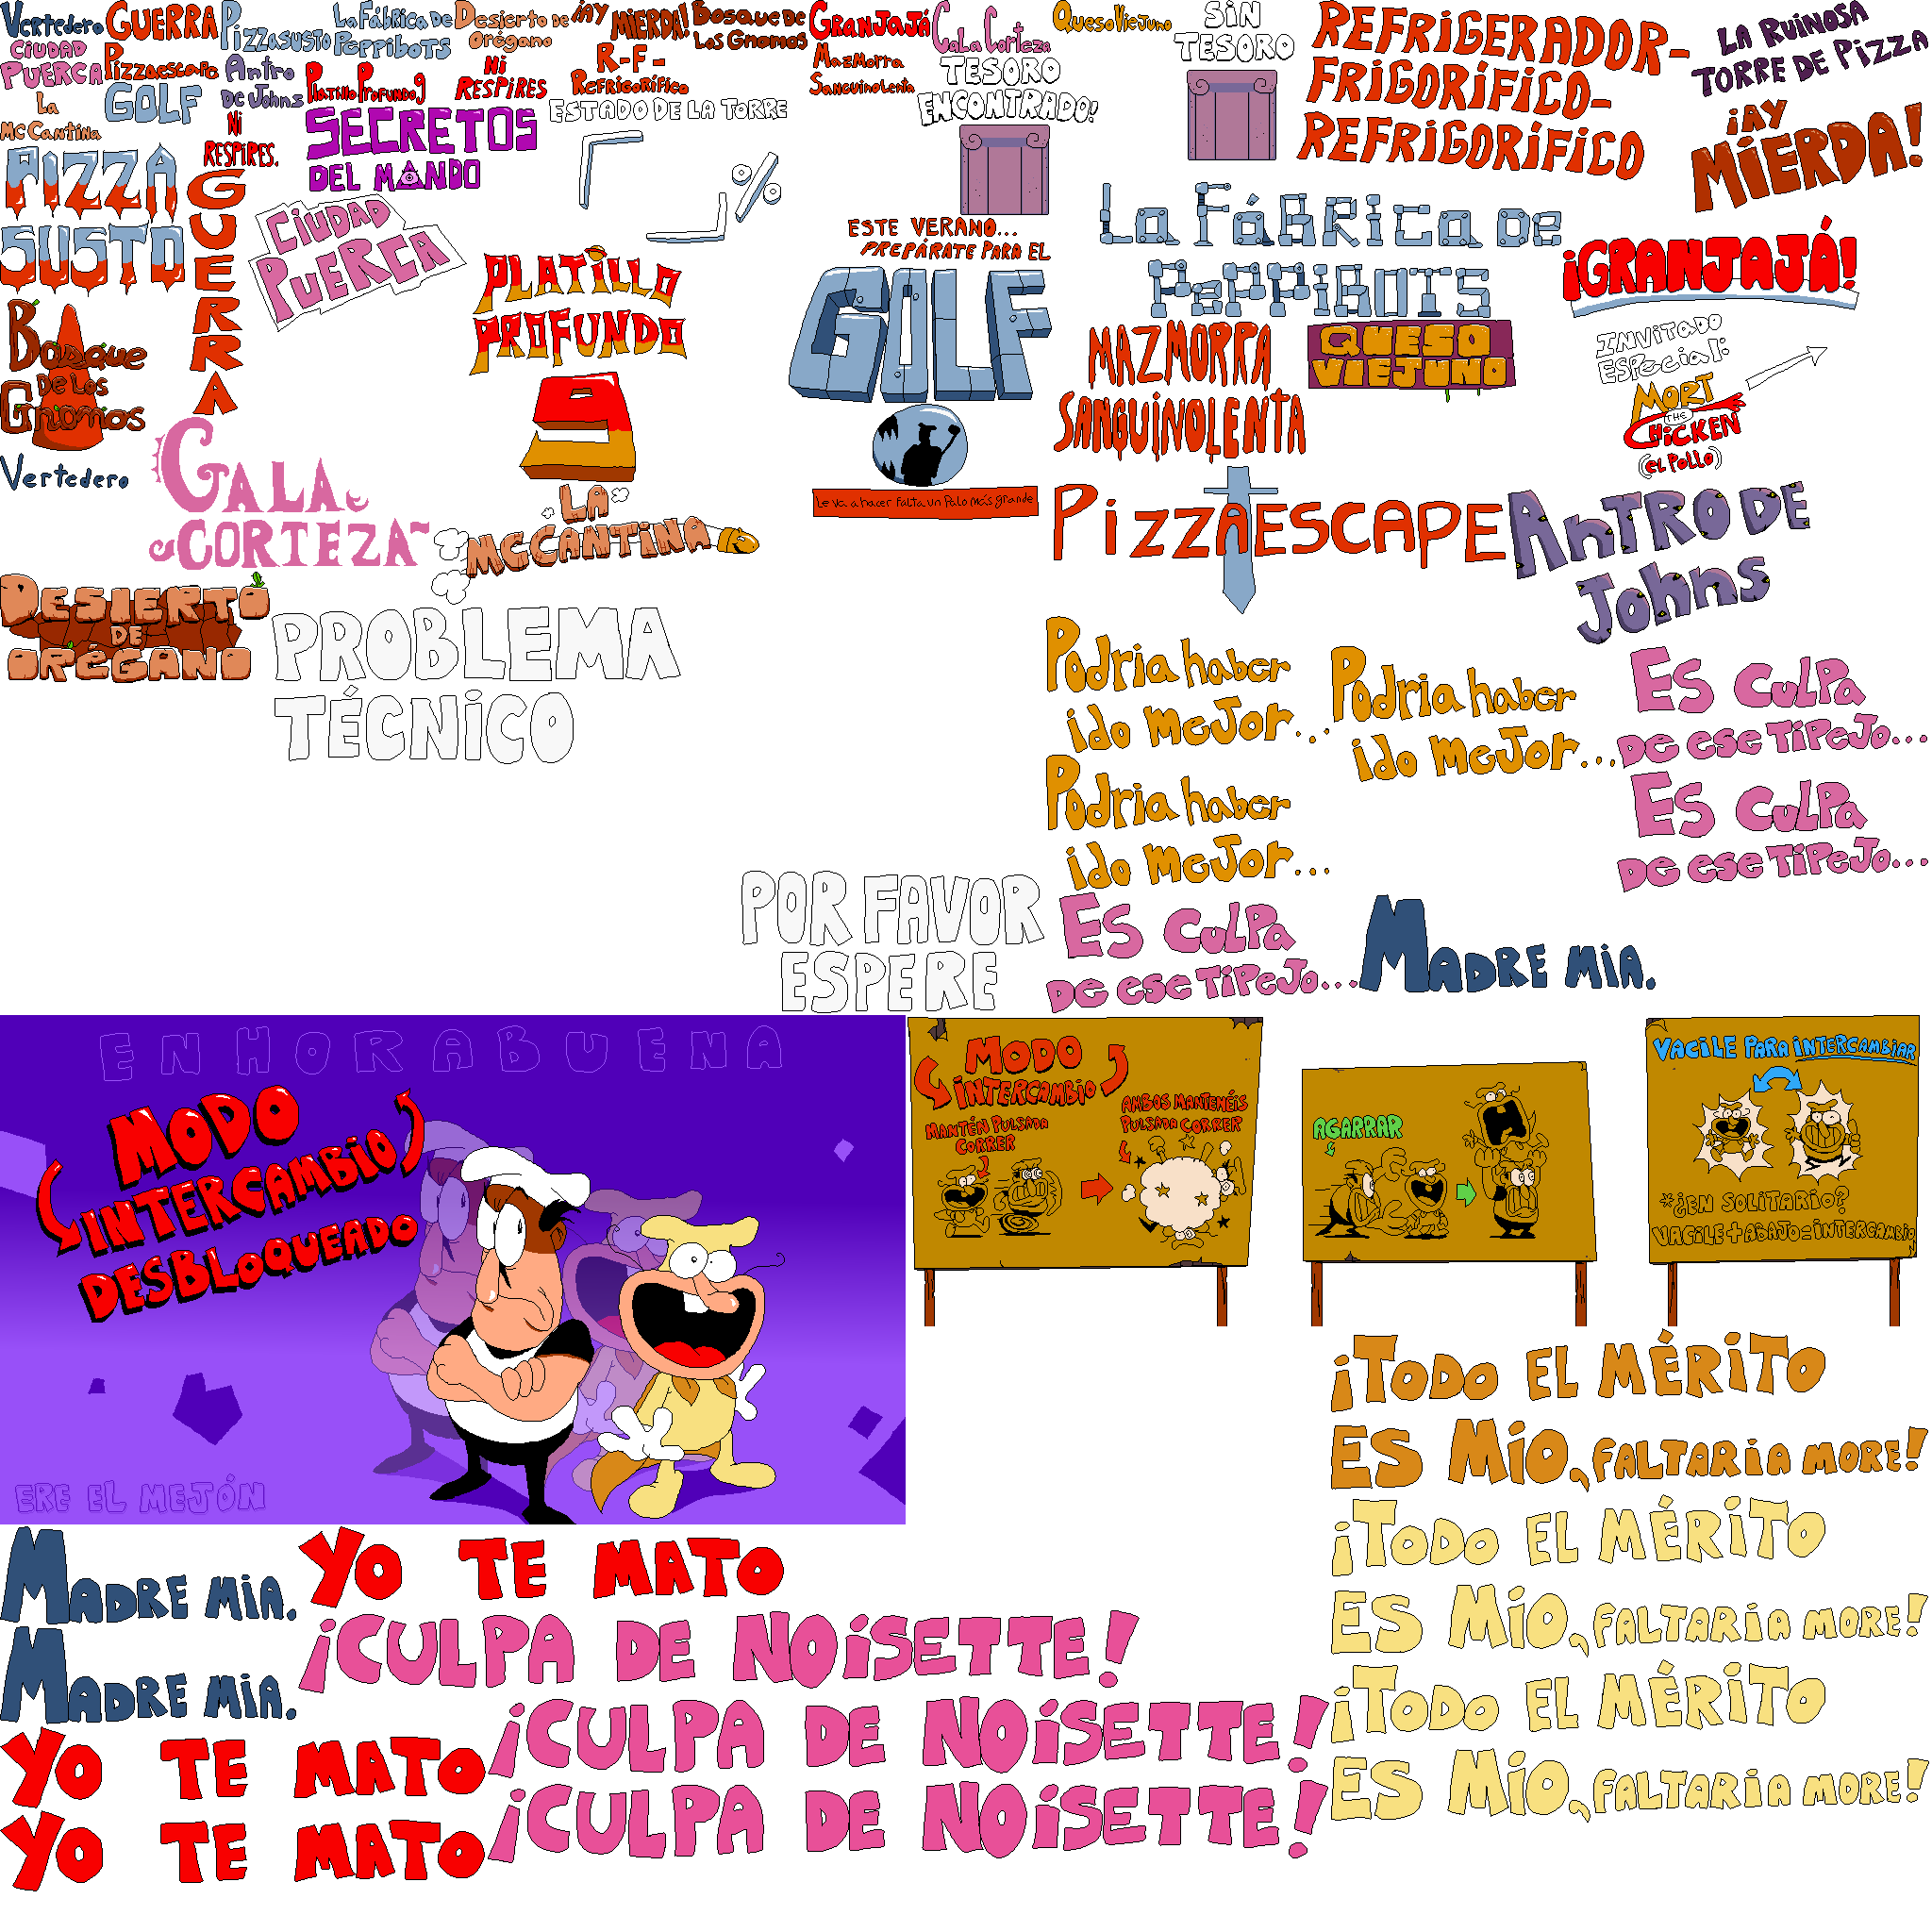 Vertedero
GUERRA
Pizzasusto
La Fábrica De
Peppibots
Desierto de
Orégano
¡AY
MIERDA!
Bosque De
Los Gnomos
GRANJAJÁ
Gala Corteza
Queso Viejuno
SIN
TESORO
REFRIGERADOR-
FRIGORÍFICO-
REFRIGORÍFICO
LA RUINOSA
TORRE DE PIZZA
CIUDAD
PUERCA
Pizzaescape
Antro
De Johns
Platillo Profundo 9
Ni
RESPIRES
R-F-
REFRIGORÍFICO
Mazmorra
Sanguinolenta
TESORO
ENCONTRADO!
La
McCantina
GOLF
Ni
RESPIRES.
SECRETOS
DEL MANDO
ESTADO DE LA TORRE
%
¡AY
MIERDA!
PIZZA
SUSTO
GUERRA
CIUDAD
PUERCA
PLATILLO
PROFUNDO
9
ESTE VERANO...
PREPÁRATE PARA EL
GOLF
Le va a hacer falta un palo más grande
La FáBRICA DE
PePPIBOTS
¡GRANJAJÁ!
MAZMORRA
SANGUINOLENTA
QUESO
VIEJUNO
INVITADO
ESPECIAL:
MORT
THE
CHICKEN
(EL POLLO)
Bosque
De Los
Gnomos
Vertedero
GALA
CORTEZA
LA
MCCANTINA
PizzAESCAPE
ANTRO DE
Johns
DESIERTO
DE
ORÉGANO
PROBLEMA
TÉCNICO
Podria haber
ido mejor...
Podria haber
ido mejor...
ES CULPA
DE ESE TIPEJO...
Podria haber
ido mejor...
ES CULPA
DE ESE TIPEJO...
POR FAVOR
ESPERE
ES CULPA
DE ESE TIPEJO...
MADRE MIA.
ENHORABUENA
MODO
INTERCAMBIO
DESBLOQUEADO
ERE EL MEJÓN
MODO
INTERCAMBIO
MANTÉN PULSADA
CORRER
AMBOS MANTENÉIS
PULSADA CORRER
AGARRAR
VACILE PARA INTERCAMBIAR
*¿EN SOLITARIO?
VACILE+ABAJO=INTERCAMBIO
¡TODO EL MÉRITO
ES MÍO, FALTARÍA MORE!
¡TODO EL MÉRITO
ES MÍO, FALTARÍA MORE!
¡TODO EL MÉRITO
ES MÍO, FALTARÍA MORE!
MADRE MIA.
YO TE MATO
¡CULPA DE NOISETTE!
MADRE MIA.
¡CULPA DE NOISETTE!
YO TE MATO
¡CULPA DE NOISETTE!
YO TE MATO